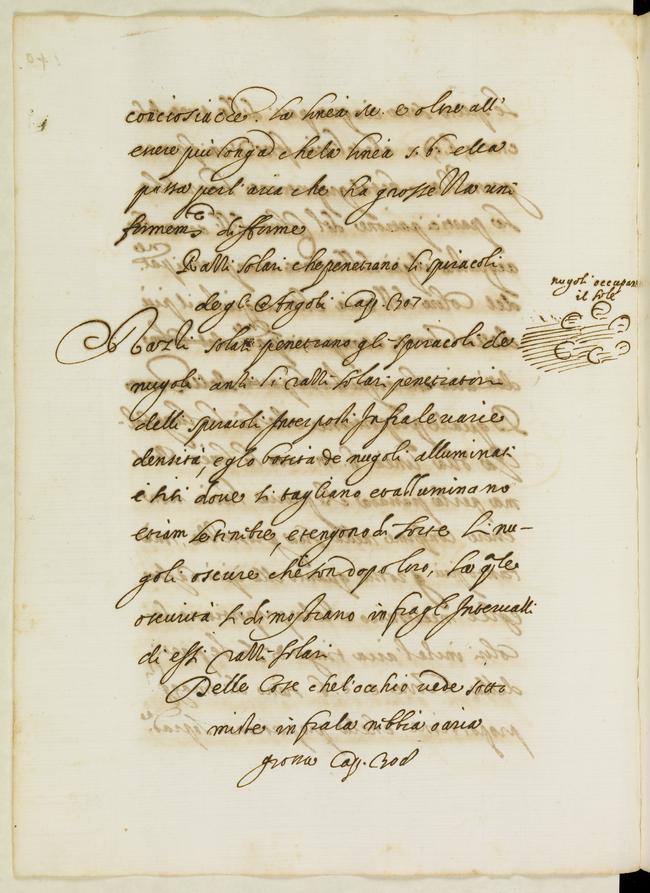 conciosiache. La linea st. è oltre all'
essere piu longa che la linea s.b. ella
passa per l'aria che ha grossezza uni
formemte difforme
Razzi solari che penetrano li spiracoli
de gli Angoli Cap. 307
Razzi solari penetrano gli spiracoli de
nugoli anzi li razzi solari penetratori
delli spiracoli Interposti Infra le varie
densità, e globosità de nugoli alluminati
i siti dove si tagliano et alluminano
etiam le tenebre, e tengono di sorte li nu-
goli oscure che son dopo loro, la qle
oscurità si dimostrano infra gli Intervalli
di essi razzi solari
Delle Cose che l'occhio vede sotto
miste infra la nibbia o aria
grossa Cap. 308
nugoli occupan
il sole